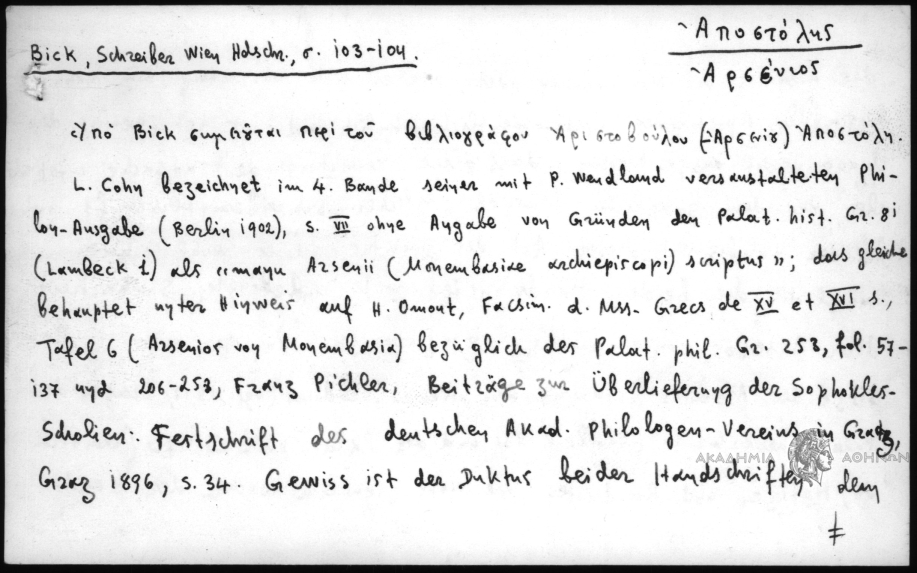 Ἀποστόλης
Bick, Schreiber Wien Hdschr., σ. 103-104.
Ἀρσένιος
Ὑπὸ Bick σημειοῦται περὶ τοῦ βιβλιογράφου Ἀριστοβούλου (=Ἀρσενίου) Ἀποστόλη.
L. Cohn bezeichnet im 4. Bande seiner mit P. Wendland veranstalteten Phi-
lon-Ausgabe (Berlin 1902), s. VII ohne Angabe von Gründen den Palat. hist. Gr. 81
(Lambeck 1) als «manu Arsenii (Monembasiae archiepiscopi) scriptus»; das gleiche
behauptet unter Hinweis auf H. Omont, Facsim. d. Mss. Grecs de XV et XVI s.,
Tafel 6 (Arsenios von Monembasia) bezüglich des Palat. phil. Gr. 253, fol. 57-
137 und 206-253, Franz Pichler, Beiträge zur Überlieferung der Sophokles-
Scholien. Festschrift des deutschen Akad. Philologen-Vereins in Graz,
Graz 1896, s. 34. Gewiss ist der Duktus beider Handschriften dem
ΑΚΑΔΗΜΙΑ ΑΘΗΝΩΝ